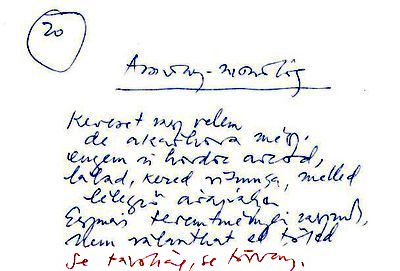 20
Asszony-monológ
Keveset vagy velem
de akárhova mész,
engem is hordoz arcod,
lábad, kezed ritmusa, melled
lélegző árapálya
Egymás teremtményei vagyunk,
Nem választhat el tőled
se távolság, se törvény.